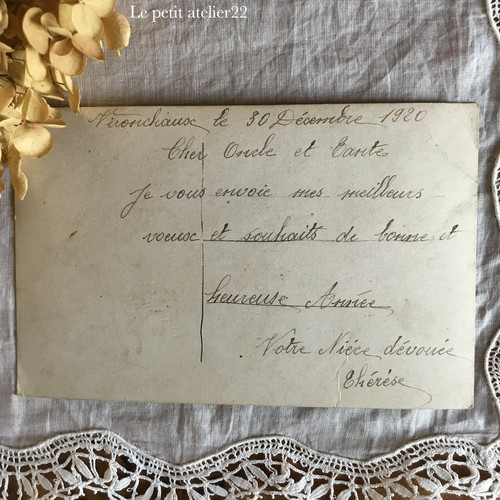 Le petit atelier22
Néronchaux le 30 Décembre 1920
Cher Oncle et Tante
Je vous envoie mes meilleurs
voeux et souhaits de bonne et
heureuse Année
Votre Nièce dévouée
Thérèse